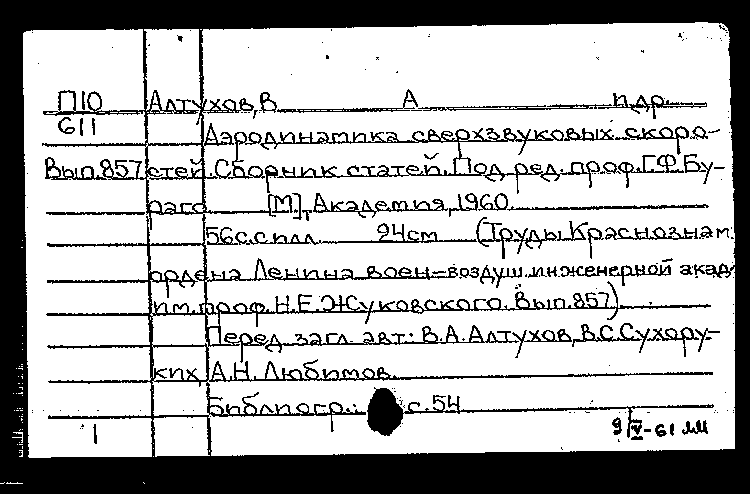 П10 Алтухов, В А и др.
611
Аэродинамика сверхзвуковых скоро-
Вып.857 стей. Сборник статей. Под ред. проф. Г.Ф. Бу-
раго [М], Академия, 1960.
56с. с илл. 24см (Труды Краснознам
ордена Ленина воен-воздуш. инженерной акад
им. проф. Н.Е. Жуковского. Вып. 857)
Перед загл. авт: В.А. Алтухов, В.С. Сухору-
ких, А.Н. Любимов.
Библиогр.: с. 54
1 9/V-61 ЛМ